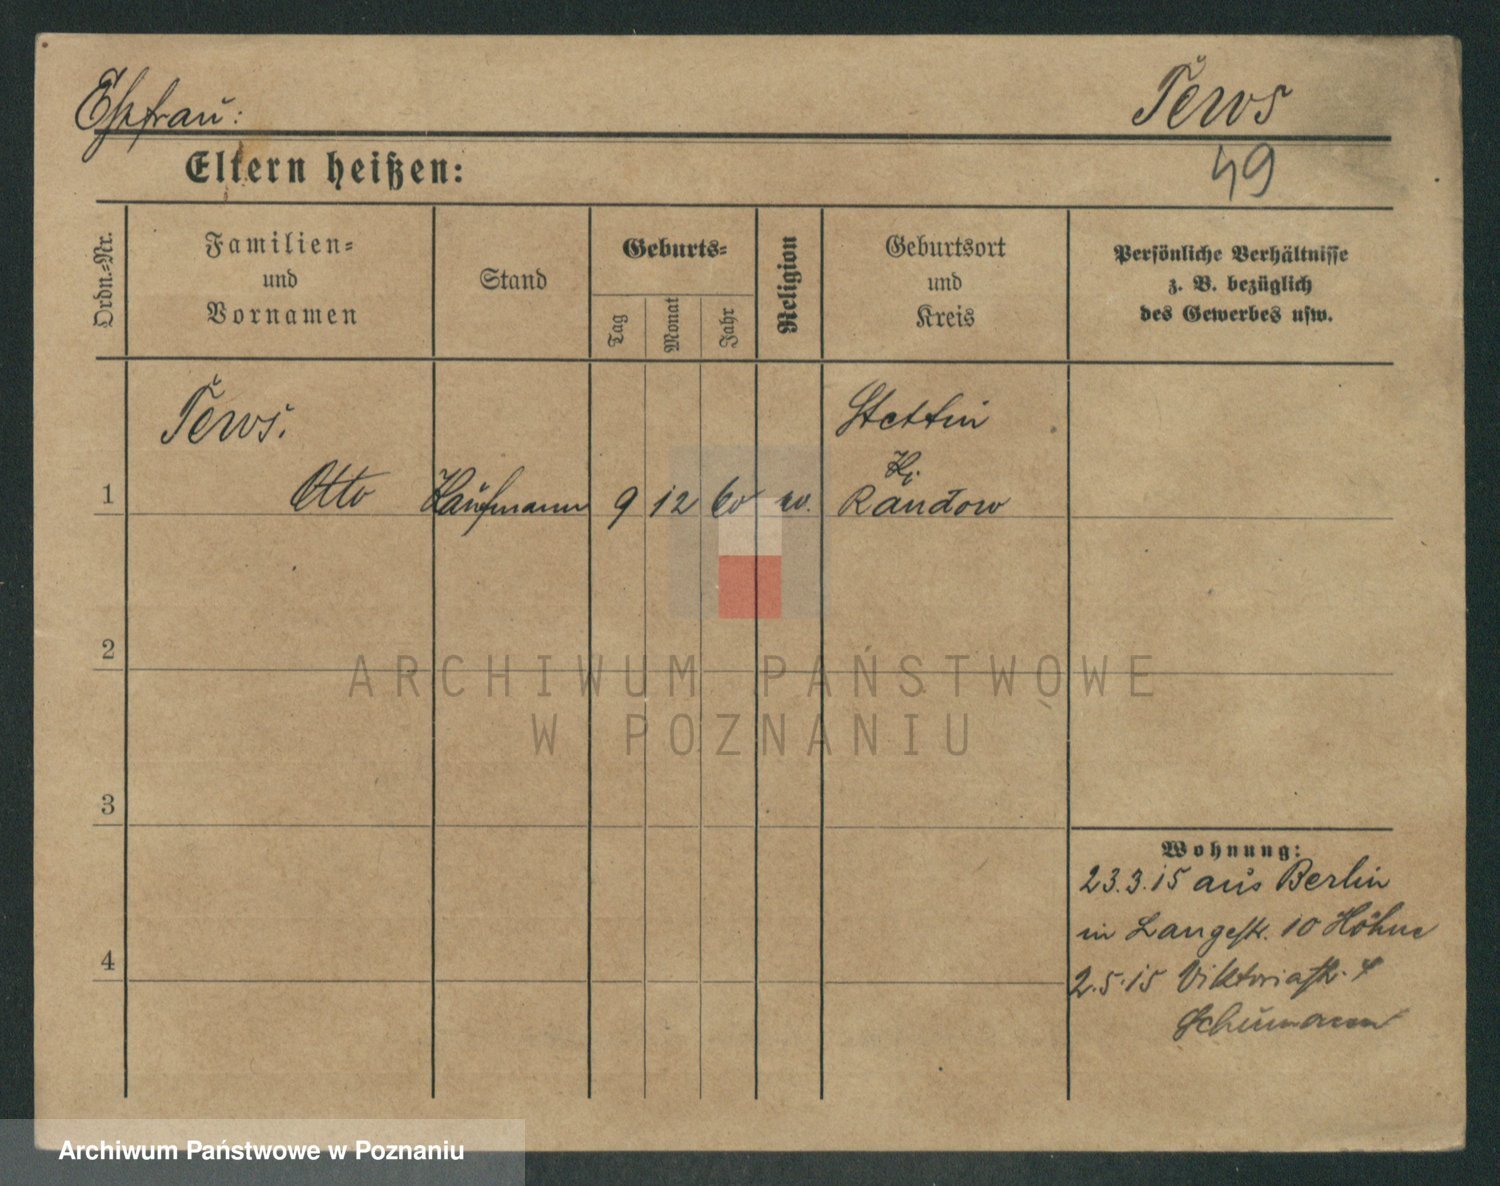 Ehefrau:
Tews
Eltern heißen:
49
Ordn.-Nr.
Familien-
und
Vornamen
Stand
Geburts-
Tag
Monat
Jahr
Religion
Geburtsort
und
Kreis
Persönliche Verhältnisse
z. B. bezüglich
des Gewerbes usw.
Tews.
Stettin
Kr.
1 Otto Kaufmann 9 12 60 Randow
2
ARCHIWUM PAŃSTWOWE
W POZNANIU
3
Wohnung:
23.3.15 aus Berlin
in Langestr. 10 Höhne
4
2.5.15 Viktoriastr.
Schumann
Archiwum Państwowe w Poznaniu